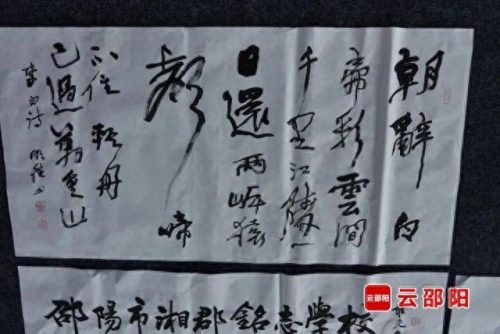 朝辭白
帝彩雲間
千里江陵一
日還兩岸猿
聲啼
不住輕舟
已過萬重山
李白诗
邵陽市湘郡銘志學校
云邵阳 云邵阳